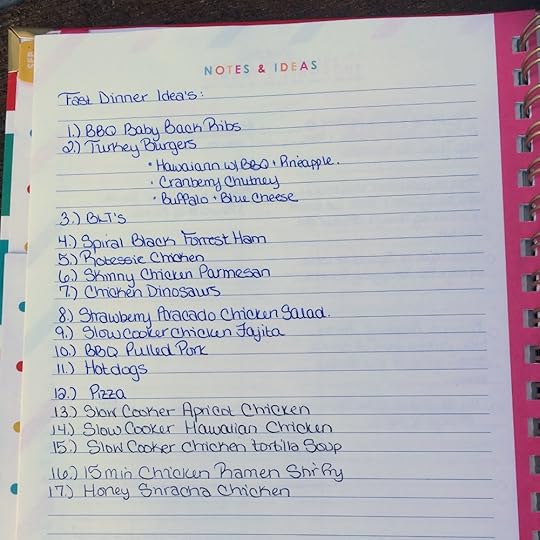 NOTES & IDEAS
Fast Dinner Idea's:
1.) BBQ Baby Back Ribs
2.) Turkey Burgers
• Hawaiiann w/BBQ + Pineapple.
• Cranberry Chutney
• Buffalo + Blue Cheese
3.) BLT's
4.) Spiral Black Forrest Ham
5.) Robessie Chicken
6.) Skinny Chicken Parmesan
7.) Chicken Dinosaurs
8.) Strawberry Avacado Chicken Salad.
9.) Slow Cooker Chicken Fajita
10.) BBQ Pulled Pork
11.) Hotdogs
12.) Pizza
13.) Slow Cooker Apricot Chicken
14.) Slow Cooker Hawaiian Chicken
15.) Slow Cooker Chicken tortilla Soup
16.) 15 min Chicken Ramen Stir Fry
17.) Honey Sriracha Chicken
SEP